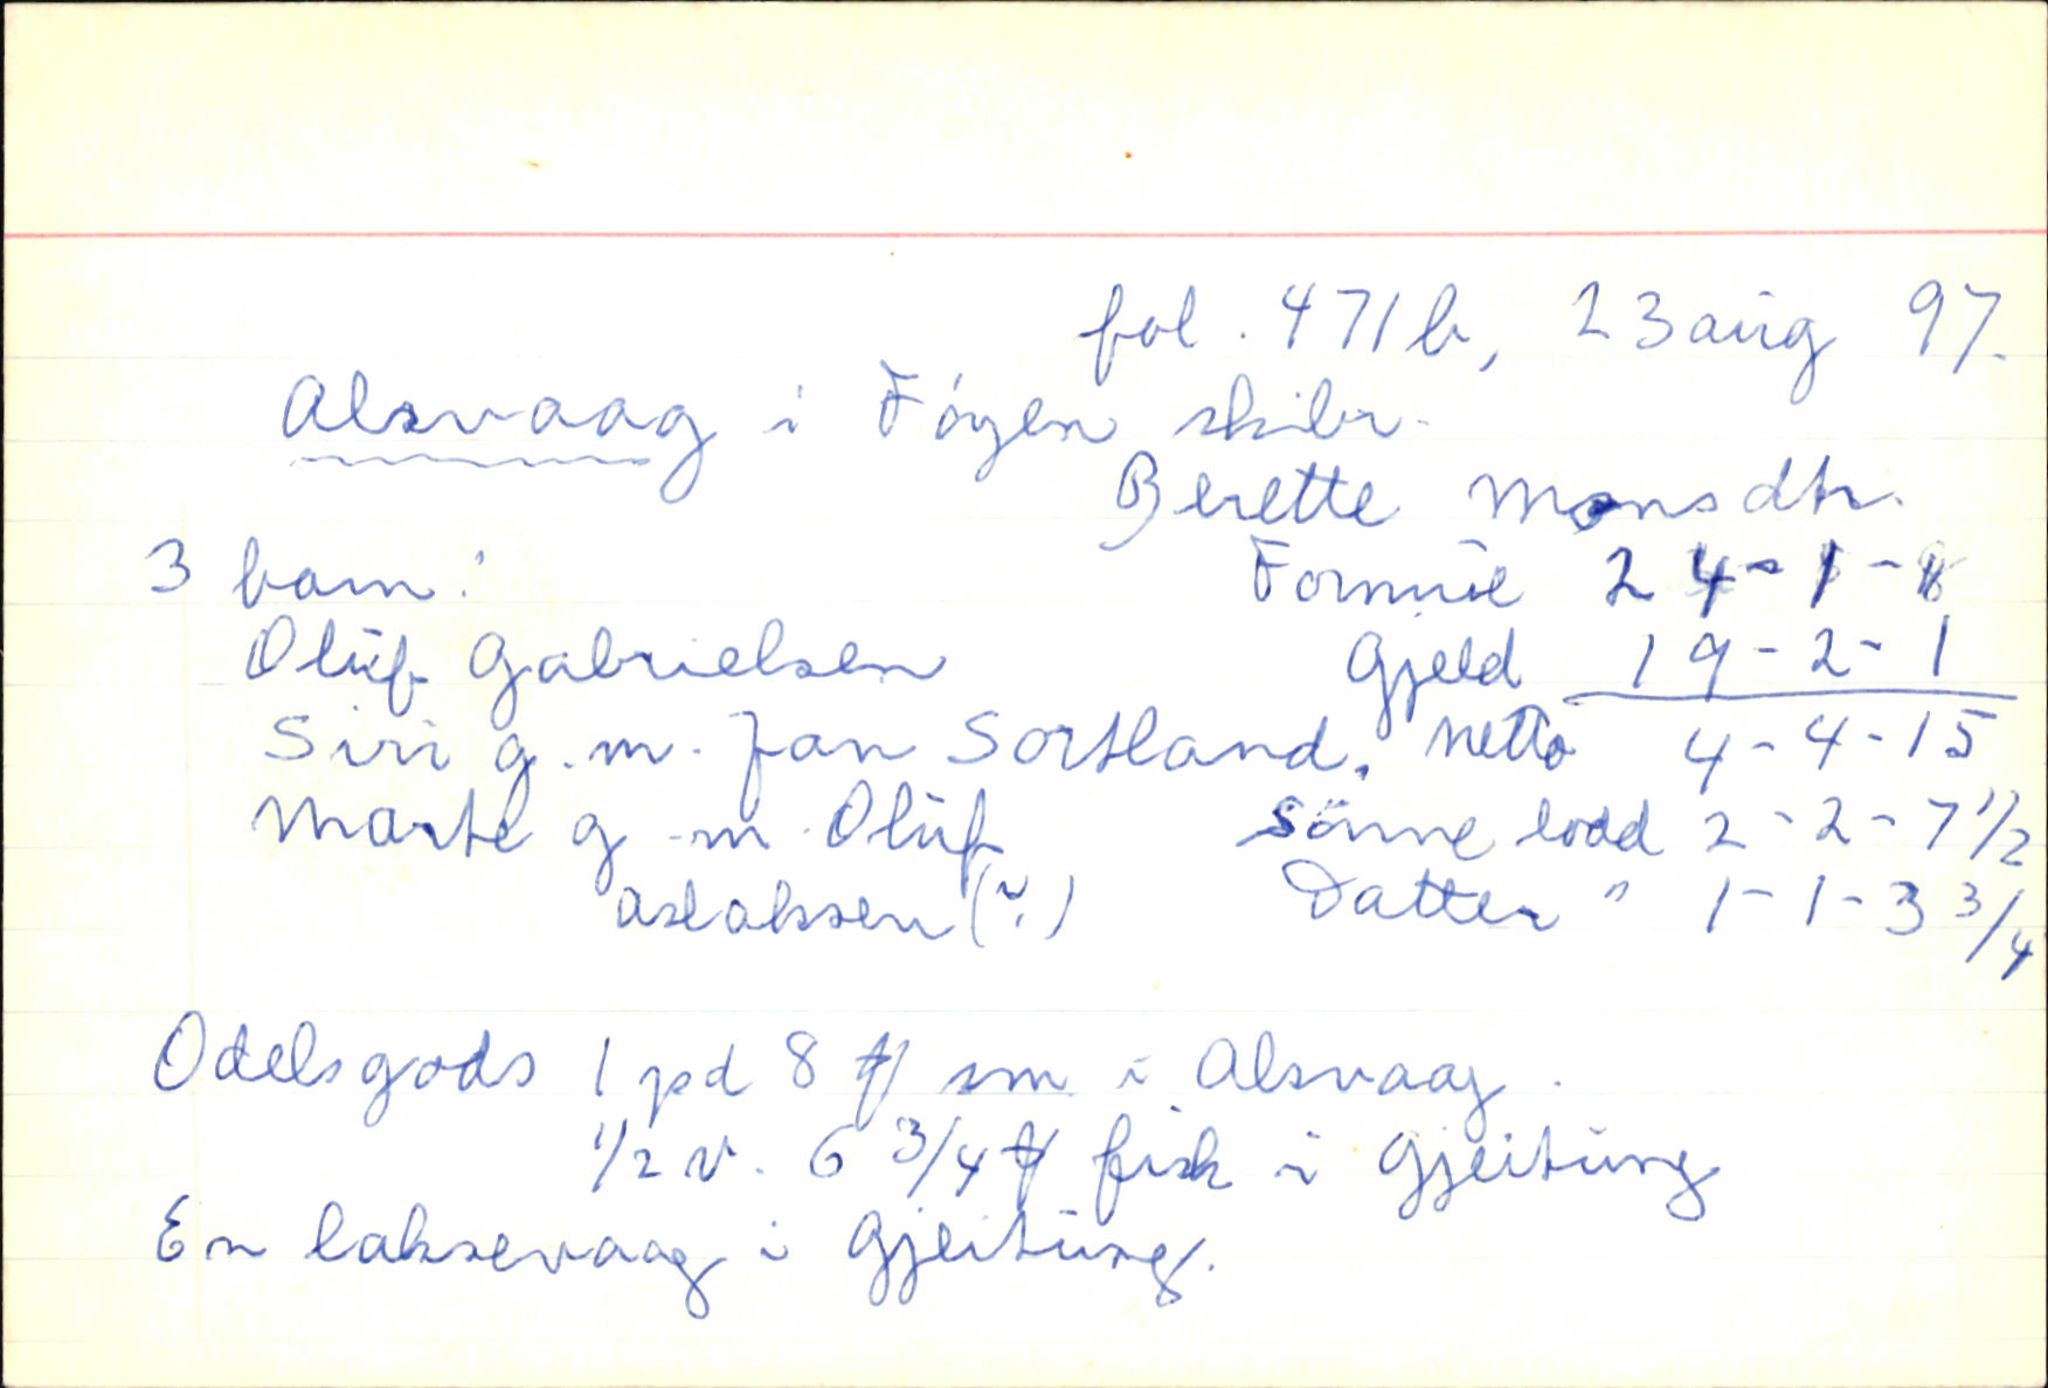 fol. 471b, 23 aug 97.
Alsvaag i Föyen skibr.
Berette Monsdtr.
3 barn: Formue 24-1-
Oluf Gabrielsen Gjeld 19-2-1
Siri g.m. Jan Sortland. Netto 4-4-15
Marte g.m. Oluf Sönne lodd 2-2-7 1/2
Aslaksen (?) Datter " 1-1-3 3/4
Odelsgods 1 pd 8 ℔ sm i Alsvaag.
1/2 v. 6 3/4 ℔ fisk i Gjeitung
En laksevaag i Gjeitung.